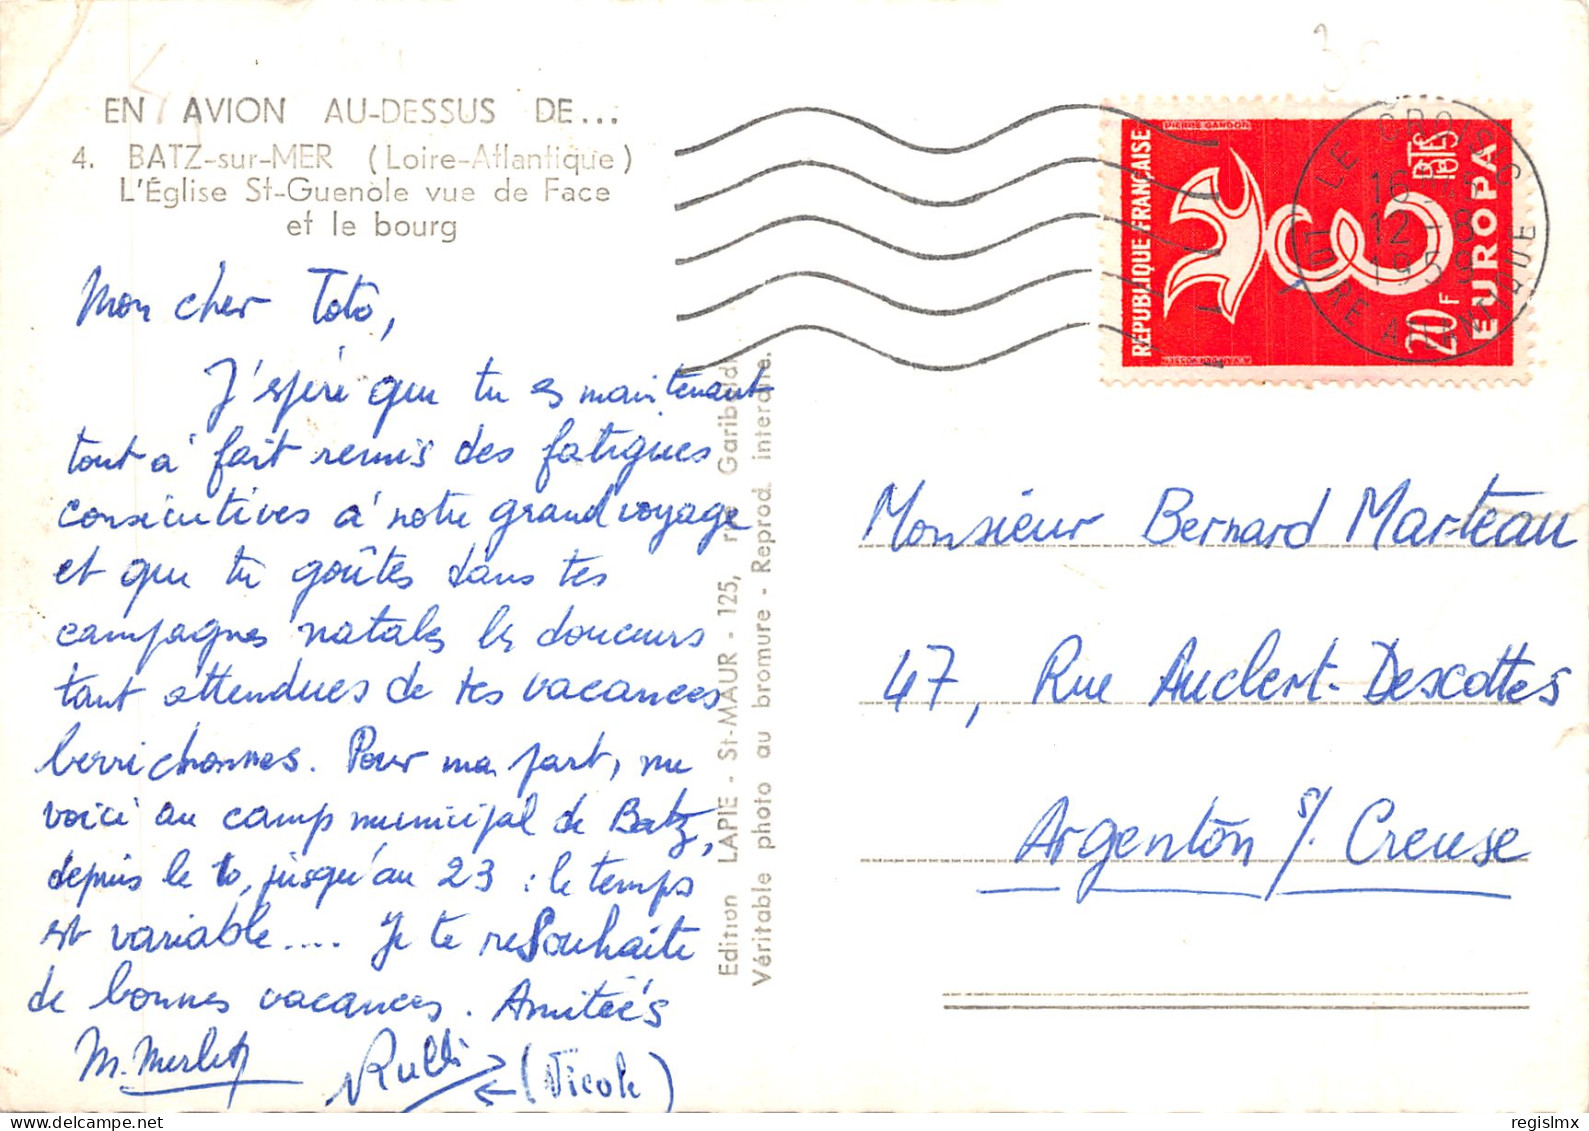 EN AVION AU-DESSUS DE...
4. BATZ-sur-MER (Loire-Atlantique)
L'Église St-Guenôle vue de Face
et le bourg
Mon cher Toto,
J'espère que tu es maintenant
tout à fait remis des fatigues
consécutives à notre grand voyage
et que tu goûtes dans tes
campagnes natales les douceurs
tant attendues de tes vacances
berrichonnes. Pour ma part, me
voici au camp municipal de Batz,
depuis le 10, jusqu'au 23 : le temps
est variable.... Je te resouhaite
de bonnes vacances. Amitiés
M. Merlet
Rulli
(Nicole)
Edition LAPIE - St-MAUR - 125, rue Garibaldi
Véritable photo au bromure - Reprod. interdite.
PIERRE GANDON
RÉPUBLIQUE FRANÇAISE
POSTES
20F
EUROPA
LE CROISIC
16
12-8
1959
LOIRE ATLANTIQUE
Monsieur Bernard Marteau
47, Rue Auclert-Descottes
Argenton s/. Creuse
regislmx